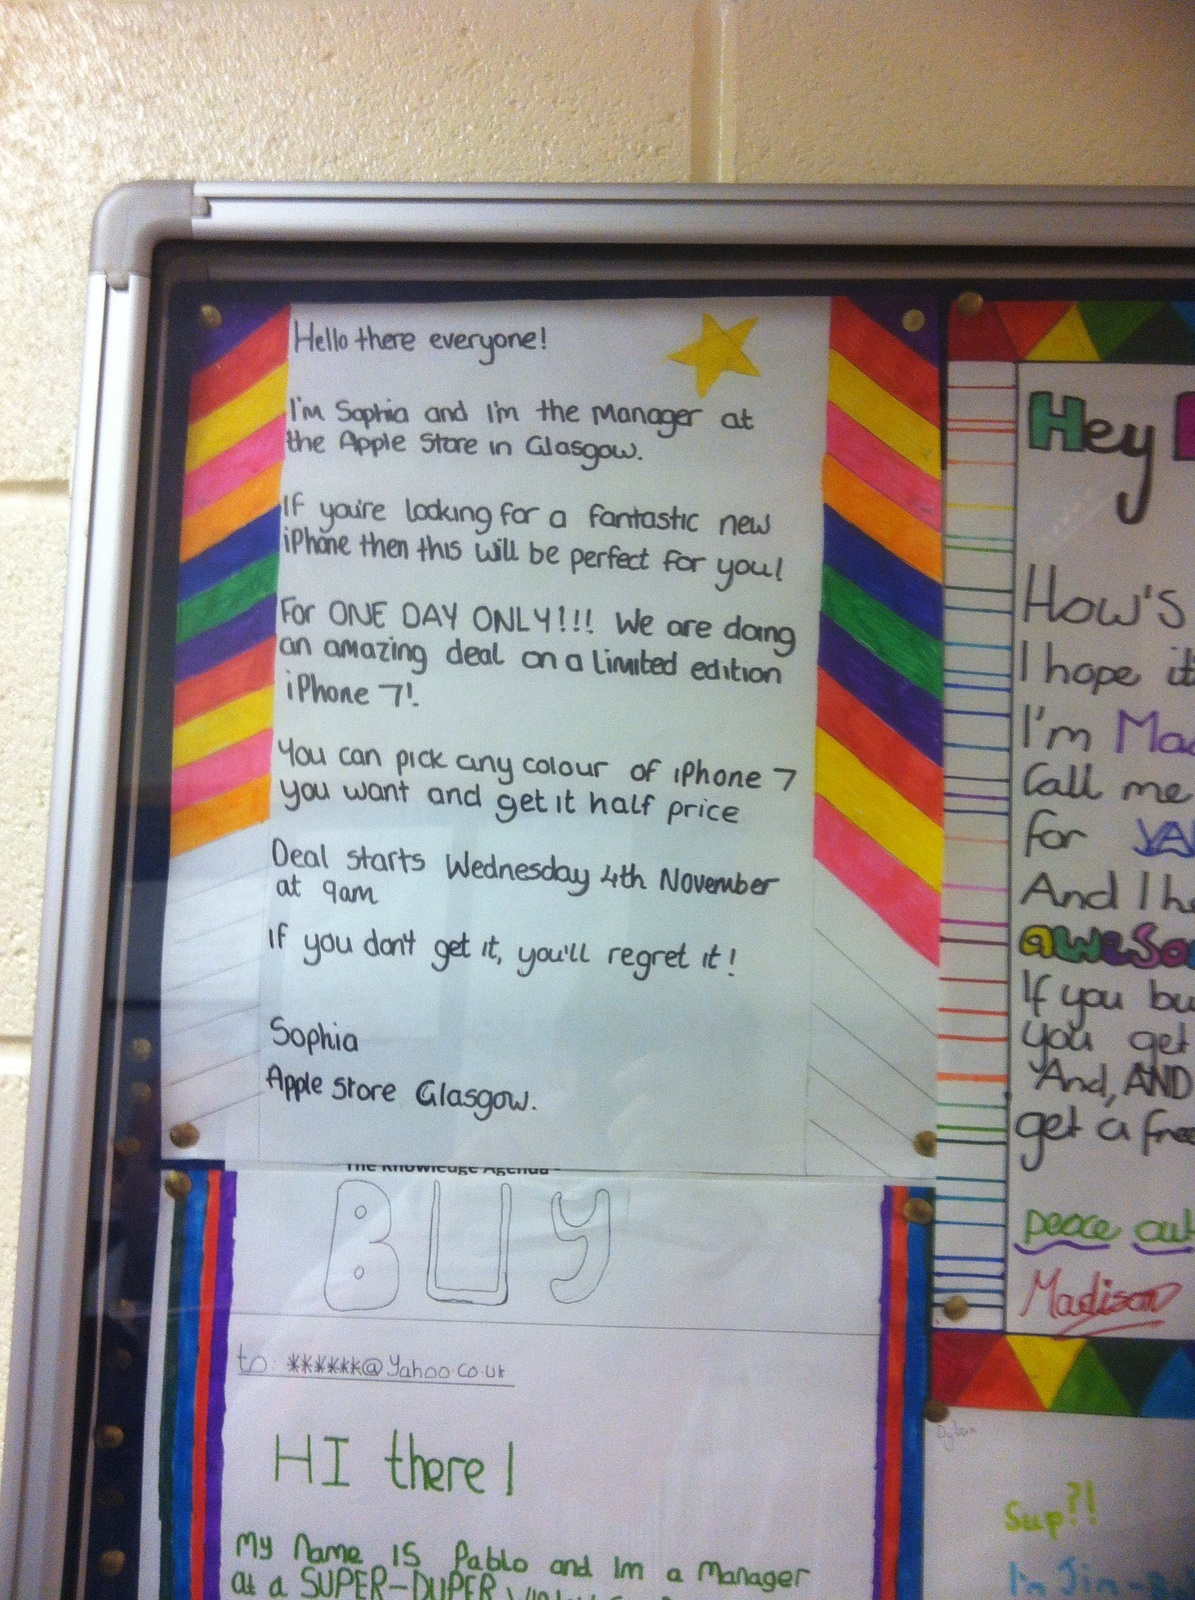 Hello there everyone!
I'm Sophia and I'm the Manager at
the Apple Store in Glasgow.
If you're looking for a fantastic new
iPhone then this will be perfect for you!
For ONE DAY ONLY!!! We are doing
an amazing deal on a limited edition
iPhone 7!
You can pick any colour of iPhone 7
you want and get it half price
Deal starts Wednesday 4th November
at 9am
If you don't get it, you'll regret it!
Sophia
Apple Store Glasgow.
The Knowledge Agenda
BUY
to: ******@Yahoo.co.uk
HI there!
My Name IS Pablo and Im a Manager
at a SUPER-DUPER
Hey
How's
I hope it
I'm
Call me
for
And I
If you
you get
And, AND
get a free
peace out
Madison
Dylan
Sup?!
I'm Jim-